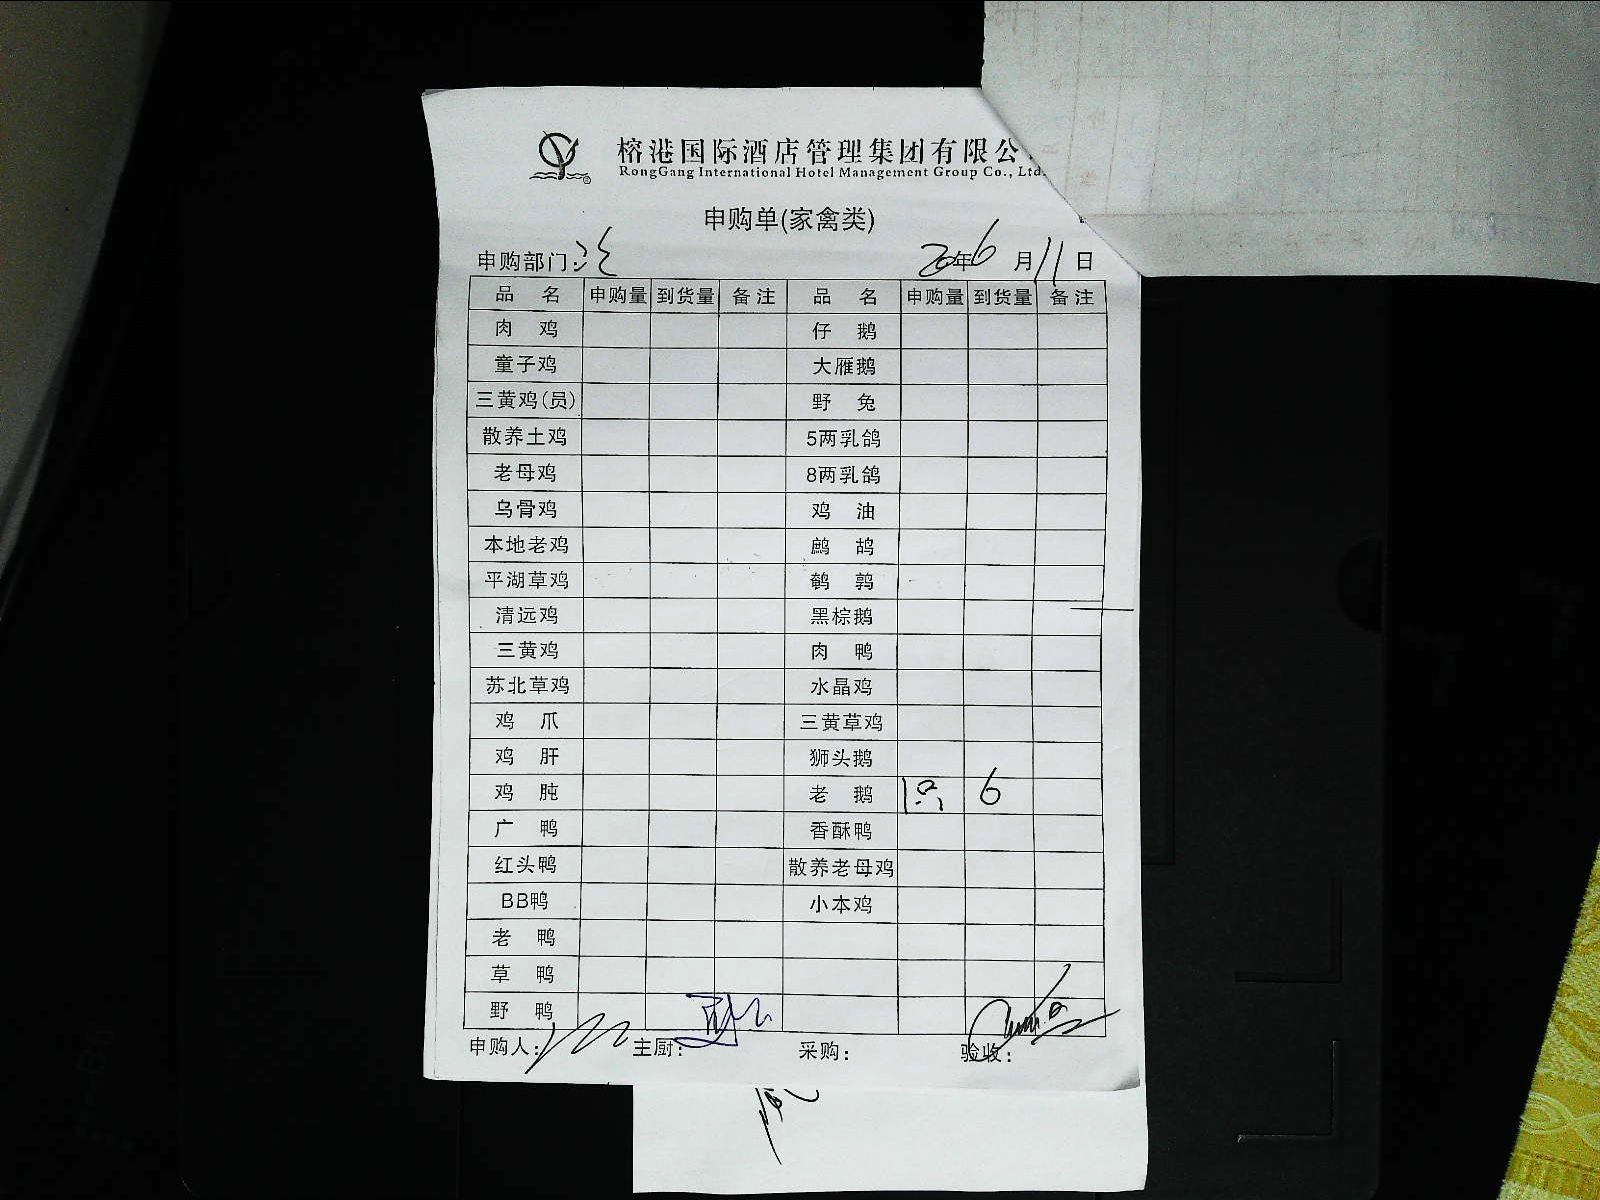 榕港国际酒店管理集团有限公
RongGang International Hotel Management Group Co., Ltd.
申购单(家禽类)
申购部门: 20年6月11日
品 名 申购量 到货量 备注 品 名 申购量 到货量 备注
肉 鸡 仔 鹅
童子鸡 大雁鹅
三黄鸡(员) 野 兔
散养土鸡 5两乳鸽
老母鸡 8两乳鸽
乌骨鸡 鸡 油
本地老鸡 鹧 鸪
平湖草鸡 鹌 鹑
清远鸡 黑棕鹅
三黄鸡 肉 鸭
苏北草鸡 水晶鸡
鸡 爪 三黄草鸡
鸡 肝 狮头鹅
鸡 肫 老 鹅 1只 6
广 鸭 香酥鸭
红头鸭 散养老母鸡
BB鸭 小本鸡
老 鸭
草 鸭
野 鸭
申购人: 主厨: 采购: 验收: